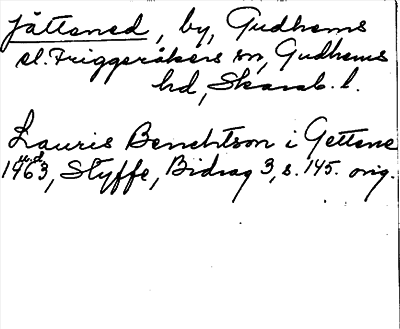 Jättened, by, Gudhems
el. Friggeråkers sn, Gudhems
hd, Skarab. l.
Lauris Benchtson i Gettene
1463, Styffe, Bidrag 3, s. 145. orig.